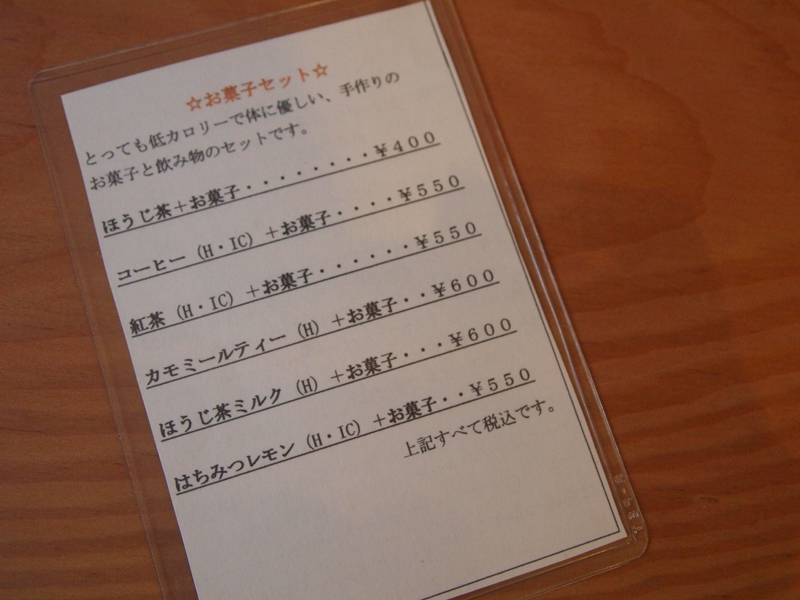 ☆お菓子セット☆
とっても低カロリーで体に優しい、手作りの
お菓子と飲み物のセットです。
ほうじ茶＋お菓子・・・・・・・・・￥４００
コーヒー（H・IC）＋お菓子・・・・￥５５０
紅茶（H・IC）＋お菓子・・・・・・￥５５０
カモミールティー（H）＋お菓子・・￥６００
ほうじ茶ミルク（H）＋お菓子・・・￥６００
はちみつレモン（H・IC）＋お菓子・・￥５５０
上記すべて税込です。